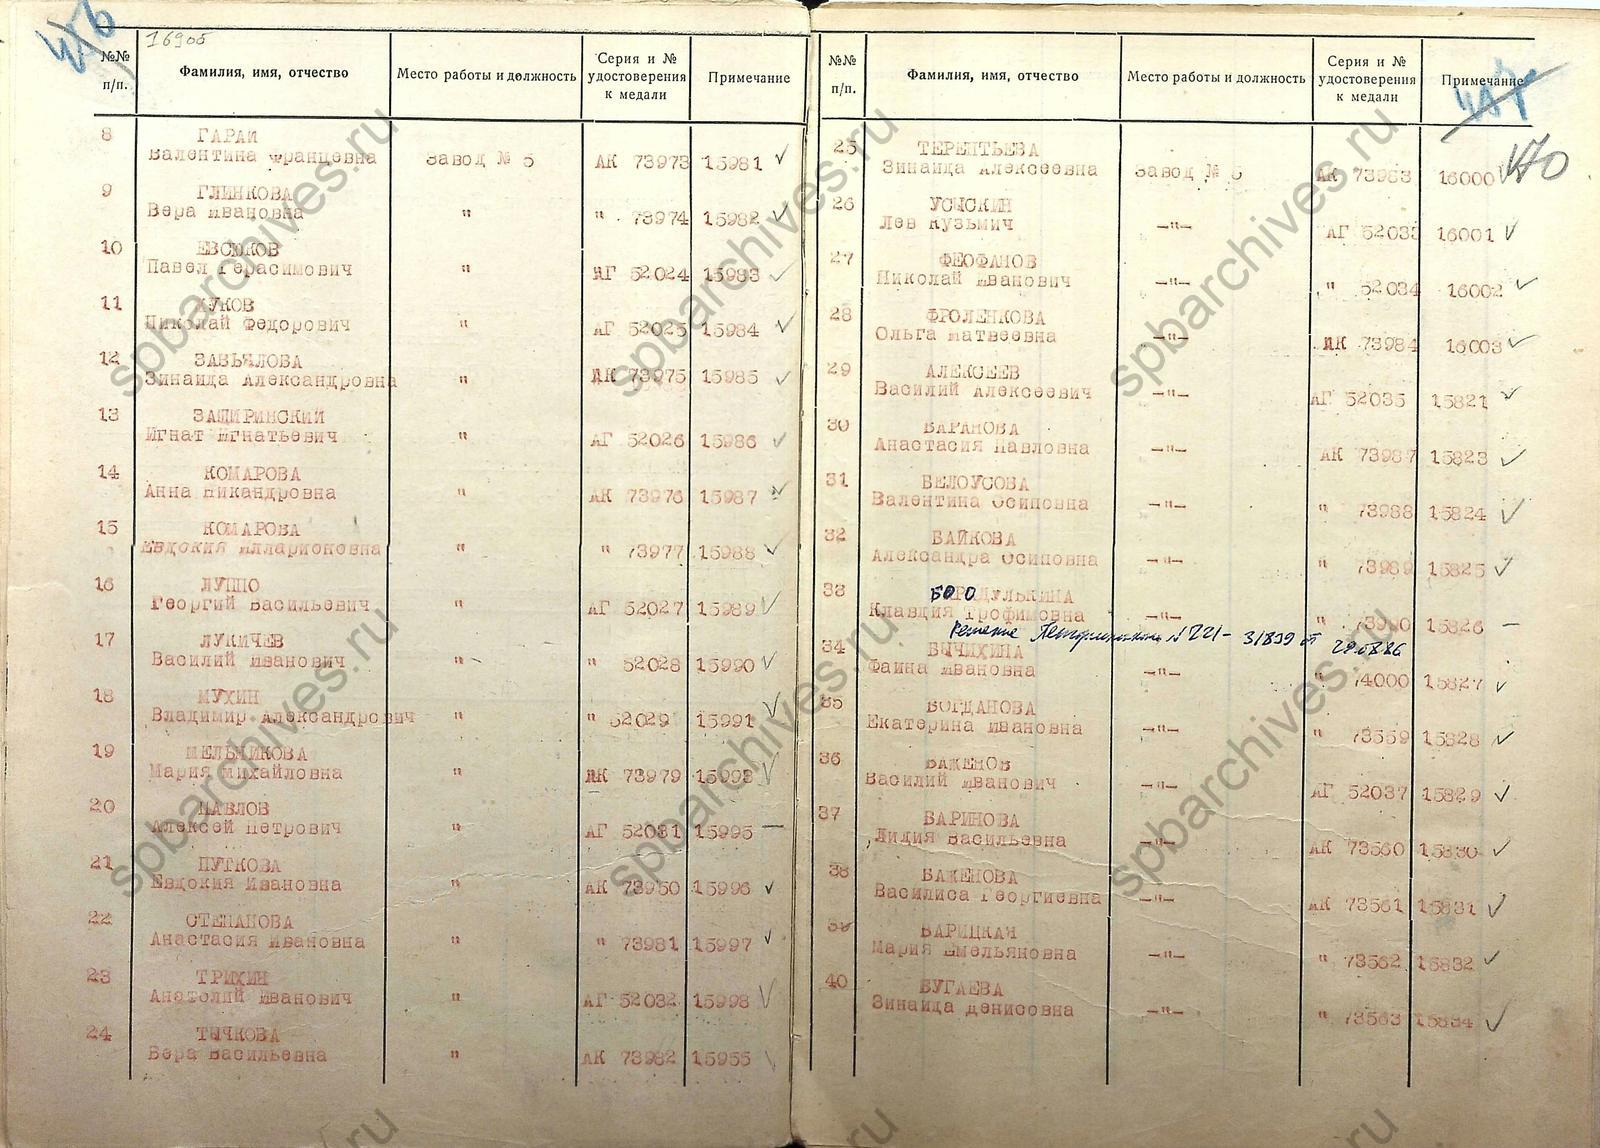 1690б
№№ п/п. Фамилия, имя, отчество Место работы и должность Серия и № удостоверения к медали Примечание
8 ГАРАЙ
Валентина Францевна Завод № 5 АК 73973 15981 ✓
9 ГЛИНКОВА
Вера Ивановна " " 73974 15982 ✓
10 ЕВСЮКОВ
Павел Герасимович " АГ 52024 15983 ✓
11 ЖУКОВ
Николай Федорович " АГ 52025 15984 ✓
12 ЗАВЬЯЛОВА
Зинаида Александровна " АК 73975 15985 ✓
13 ЗАЩИРИНСКИЙ
Игнат Игнатьевич " АГ 52026 15986 ✓
14 КОМАРОВА
Анна Никандровна " АК 73976 15987 ✓
15 КОМАРОВА
Евдокия Илларионовна " " 73977 15988 ✓
16 ЛУППО
Георгий Васильевич " АГ 52027 15989 ✓
17 ЛУКИЧЕВ
Василий Иванович " " 52028 15990 ✓
18 МУХИН
Владимир Александрович " " 52029 15991 ✓
19 МЕЛЬНИКОВА
Мария Михайловна " АК 73979 15993 ✓
20 ПАВЛОВ
Алексей Петрович " АГ 52031 15995 —
21 ПУТКОВА
Евдокия Ивановна " АК 73950 15996 ✓
22 СТЕПАНОВА
Анастасия Ивановна " " 73981 15997 ✓
23 ТРИХИН
Анатолий Иванович " АГ 52032 15998 ✓
24 ТЫЧКОВА
Вера Васильевна " АК 73982 15955 ✓
№№ п/п. Фамилия, имя, отчество Место работы и должность Серия и № удостоверения к медали Примечание
470
25 ТЕРЕНТЬЕВА
Зинаида Алексеевна Завод № 5 АК 73983 16000 ✓
26 УСЫСКИН
Лев Кузьмич —"— АГ 52033 16001 ✓
27 ФЕОФАНОВ
Николай Иванович —"— " 52034 16002 ✓
28 ФРОЛЕНКОВА
Ольга Матвеевна —"— АК 73984 16003 ✓
29 АЛЕКСЕЕВ
Василий Алексеевич —"— АГ 52035 15821 ✓
30 БАРАНОВА
Анастасия Павловна —"— АК 73987 15823 ✓
31 БЕЛОУСОВА
Валентина Осиповна —"— " 73988 15824 ✓
32 БАЙКОВА
Александра Осиповна —"— " 73989 15825 ✓
33 БОРОДУЛЬКИНА
Клавдия Трофимовна —"— " 73990 15826 —
Решение № 221- 31839 от
34 БЫЧИХИНА
Фаина Ивановна —"— " 74000 15827 ✓
35 БОГДАНОВА
Екатерина Ивановна —"— " 73559 15828 ✓
36 БАЖЕНОВ
Василий Иванович —"— АГ 52037 15829 ✓
37 БАРИНОВА
Лидия Васильевна —"— АК 73560 15830 ✓
38 БАЖЕНОВА
Василиса Георгиевна —"— АК 73561 15831 ✓
39 БАРИЦКАЯ
Мария Емельяновна —"— " 73562 15832 ✓
40 БУГАЕВА
Зинаида Денисовна —"— " 73563 15834 ✓
spbarchives.ru
spbarchives.ru
spbarchives.ru
spbarchives.ru
spbarchives.ru
spbarchives.ru